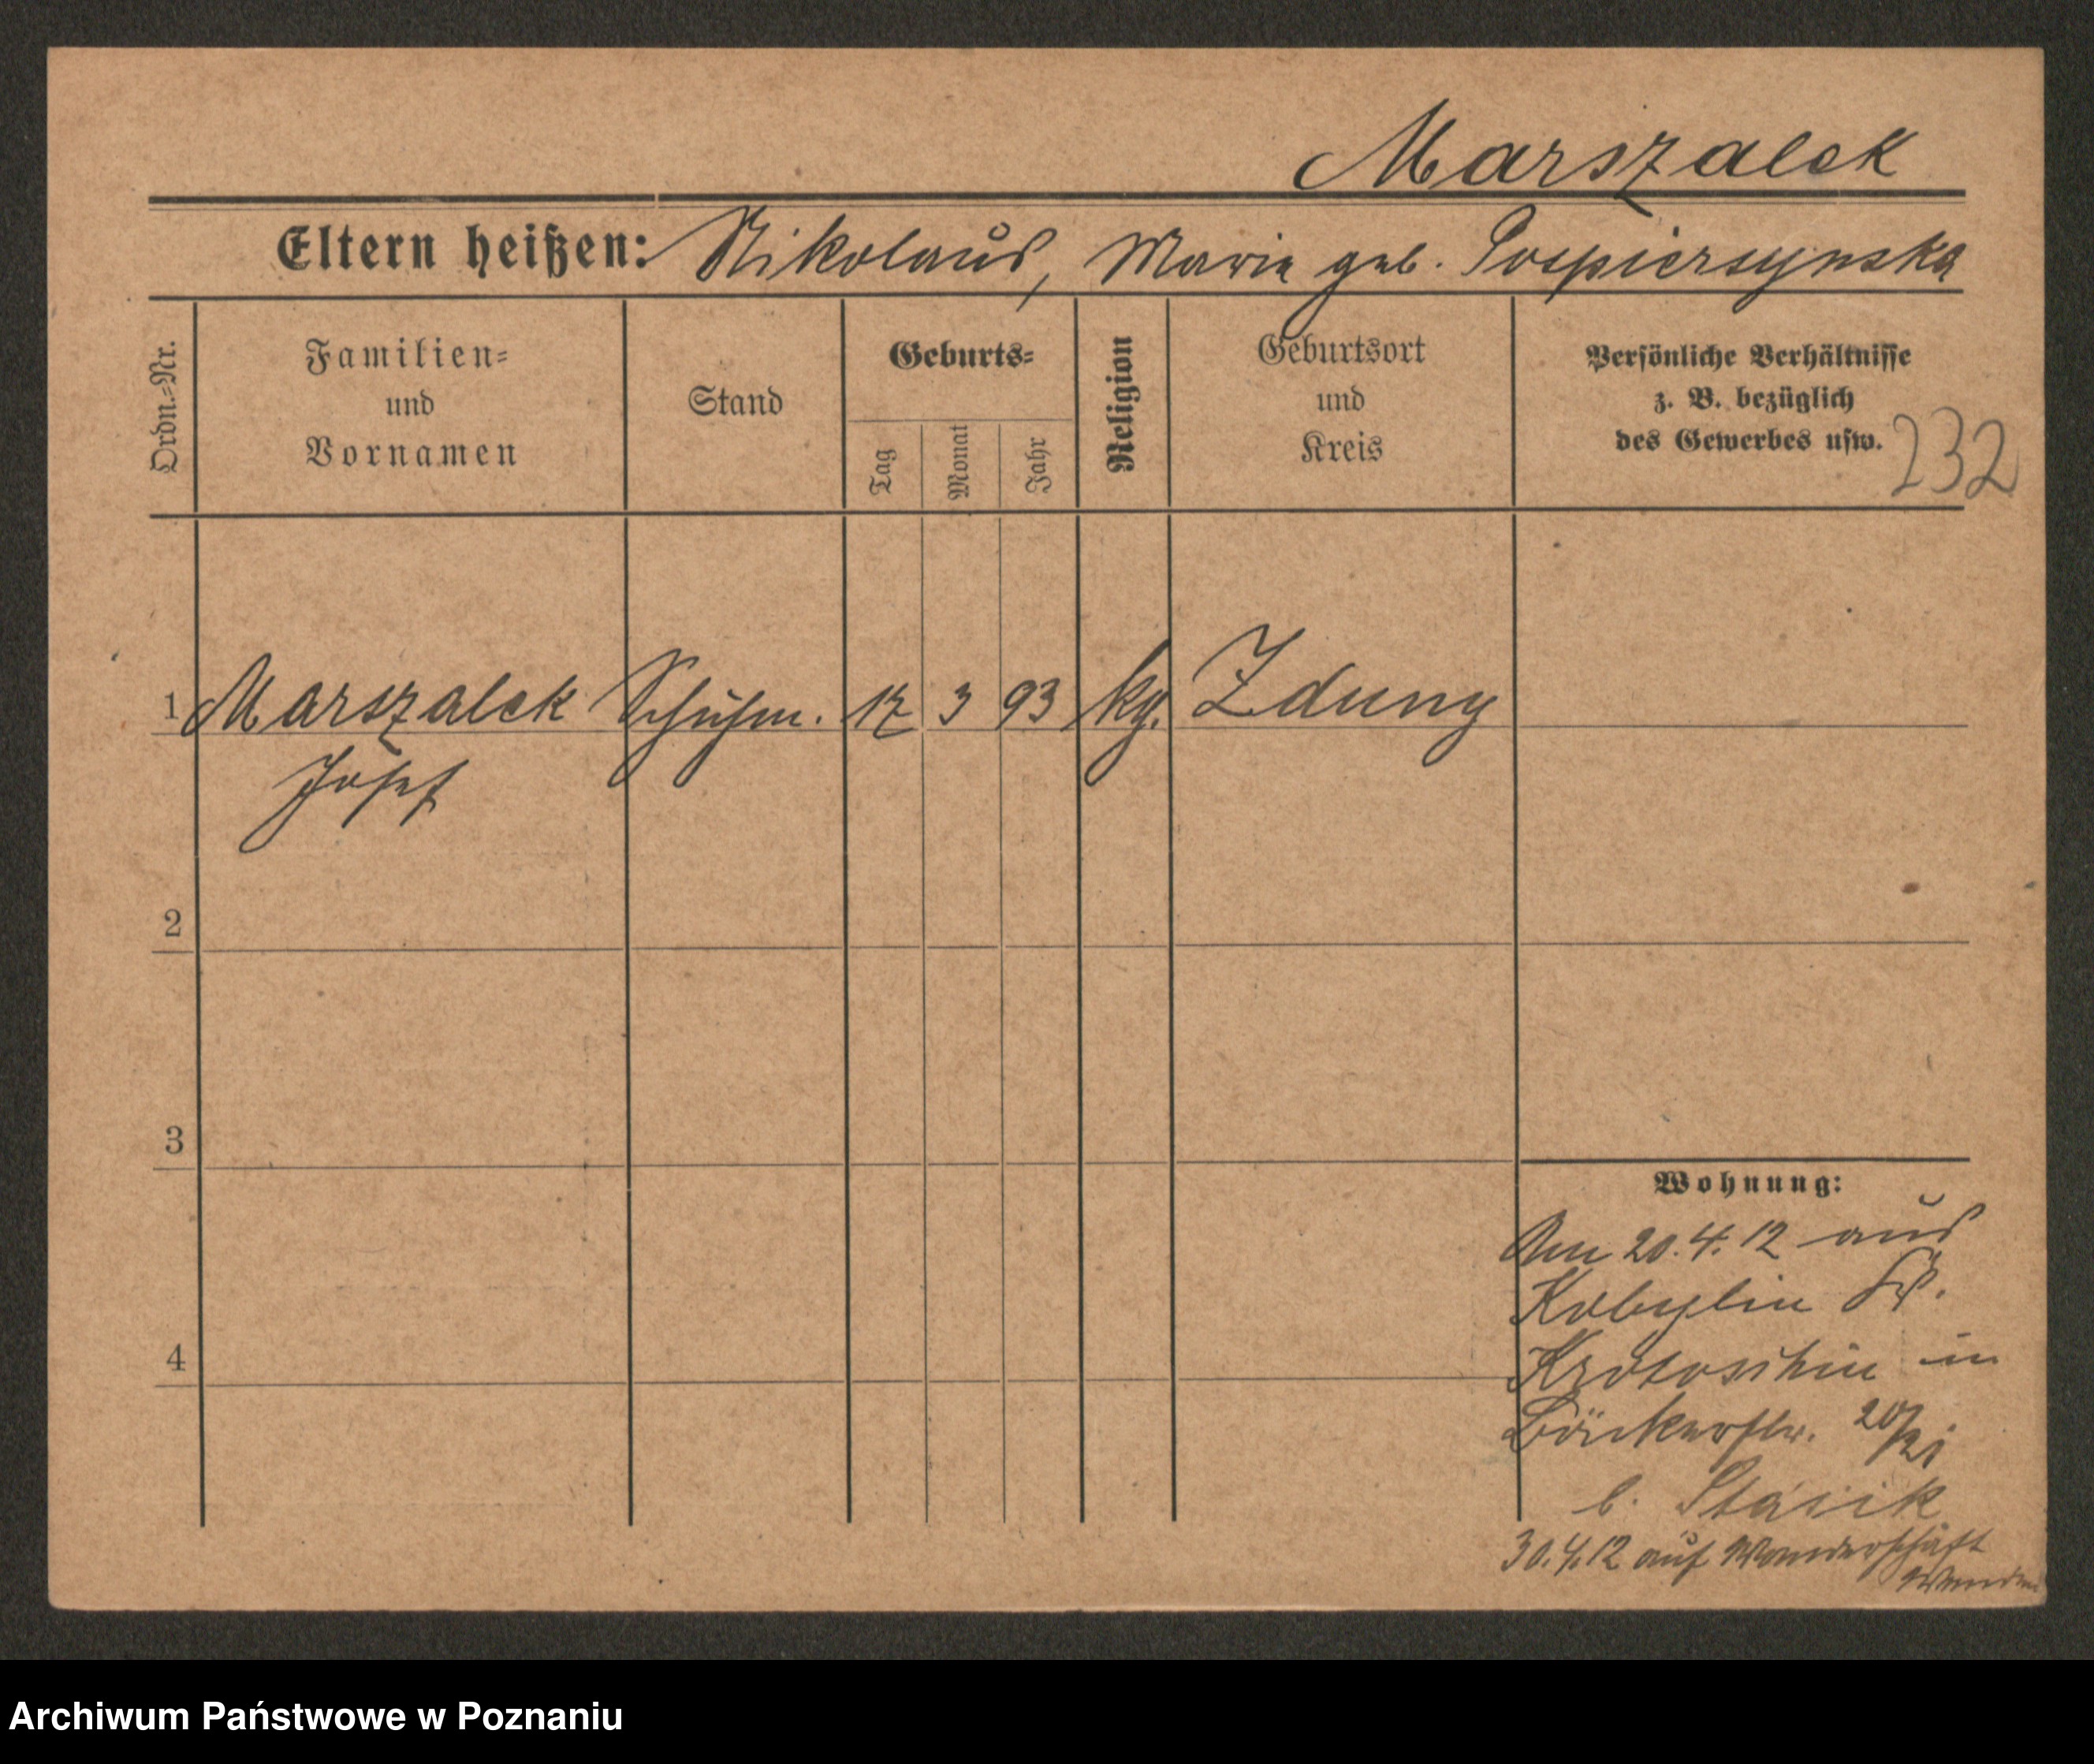 Marszalek
Eltern heißen: Nikolaus, Marie geb. Pospiersynska
Ordn.=Nr.
Familien=
und
Vornamen
Stand
Geburts=
Tag
Monat
Jahr
Religion
Geburtsort
und
Kreis
Persönliche Verhältnisse
z. B. bezüglich
des Gewerbes usw.
232
1 Marszalek Schuhm. 17 3 93 kg. Zduny
Josef
2
3
4
Wohnung:
Am 20.4.12 aus
Kobylin Kr.
Krotoschin in
Bäckerstr. 20/21
b. Stasik
30.4.12 auf Wanderschaft
Archiwum Państwowe w Poznaniu